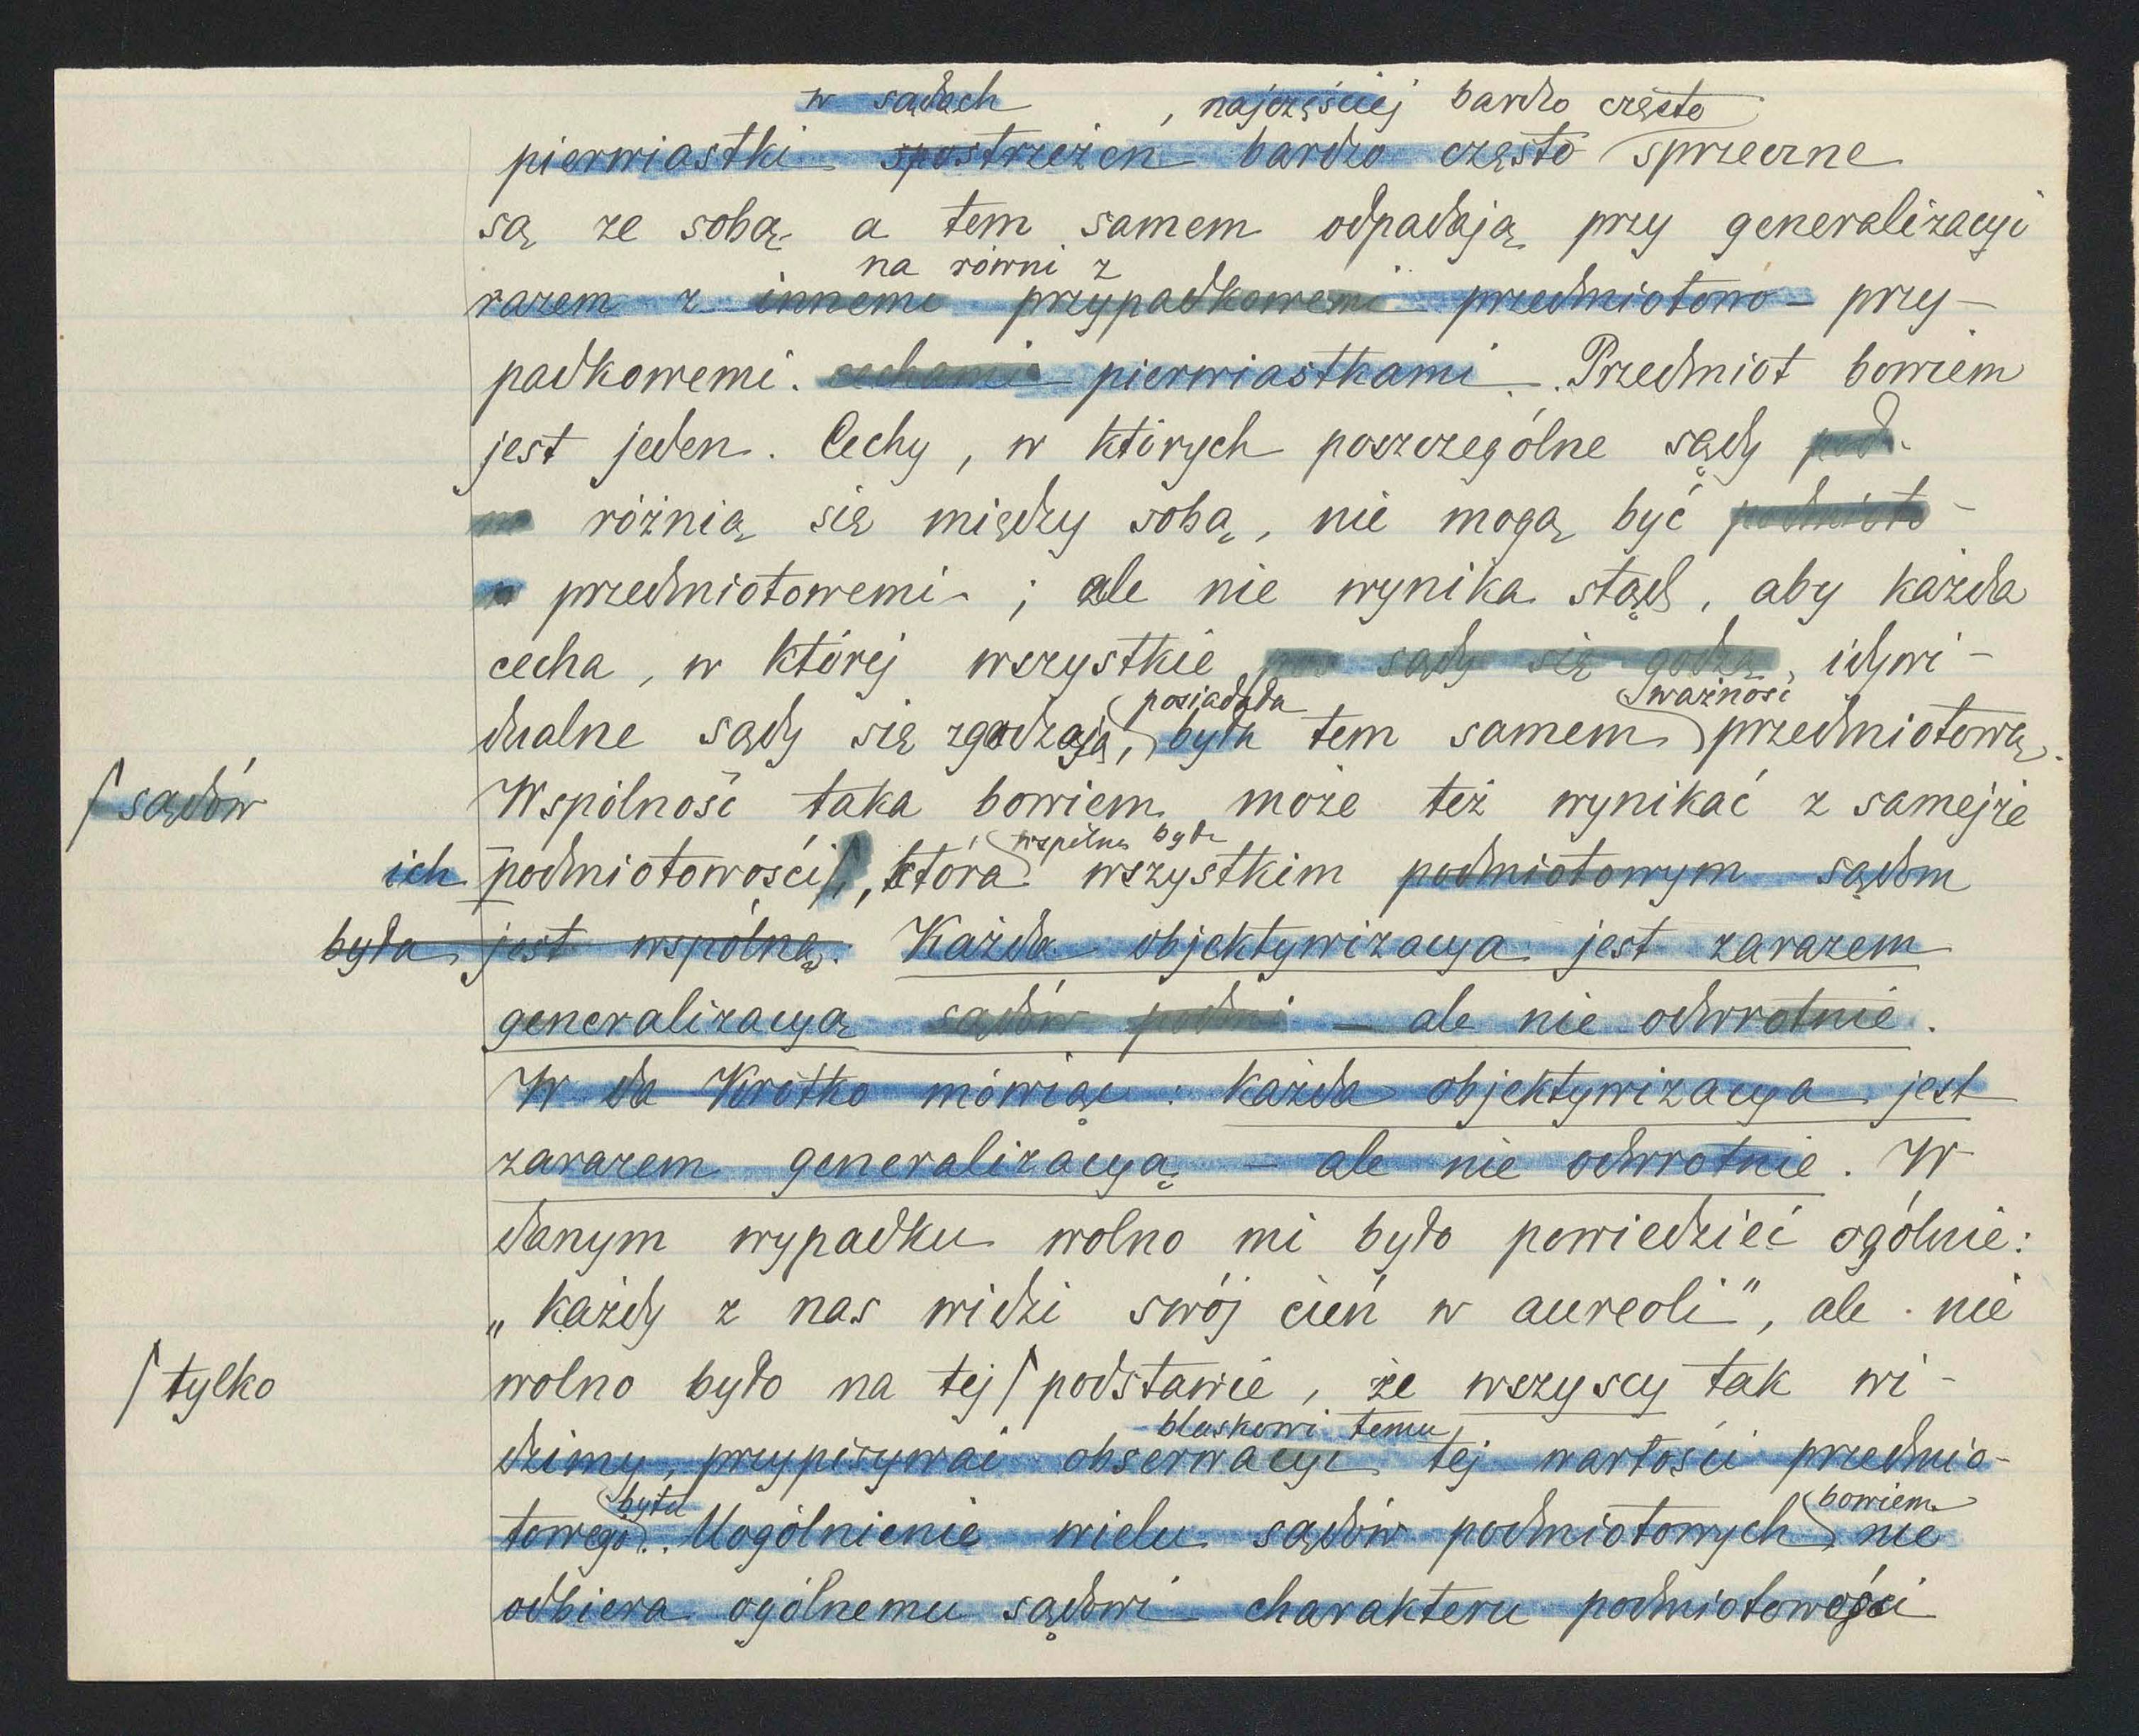 w sądach , najczęściej bardzo często
pierwiastki spostrzeżeń bardzo często sprzeczne
są ze sobą a tem samem odpadają przy generalizacyi
na równi z
razem z innemi przypadkowemi przedmiotowo- przy-
padkowemi. cechami pierwiastkami. Przedmiot bowiem
jest jeden. Cechy, w których poszczególne sądy pod-
różnią się między sobą, nie mogą być podmioto-
w przedmiotowemi ; ale nie wynika stąd, aby każda
cecha, w której wszystkie sądy się godzą, idywi-
posiadała ważność
dualne sądy się zgadzają, była tem samem przedmiotową.
Wspólność taka bowiem może też wynikać z samejże
/ sądów
wspólna była
ich podmiotowości/, która wszystkim podmiotowym sądom
była jest wspólną. Każda objektywizacya jest zarazem
generalizacyą sądów podmi — ale nie odwrotnie.
W da Krótko mówiąc : każda objektywizacya jest
zarazem generalizacyą — ale nie odwrotnie. W
danym wypadku wolno mi było powiedzieć ogólnie:
„każdy z nas widzi swój cień w aureoli", ale nie
/ tylko
wolno było na tej / podstawie, że wszyscy tak wi-
blaskowi temu
dzimy, przypisywać obserwacyi tej wartości przedmio-
bytu bowiem
towego. Uogólnienie wielu sądów podmiotowych nie
odbiera ogólnemu sądowi charakteru podmiotowości